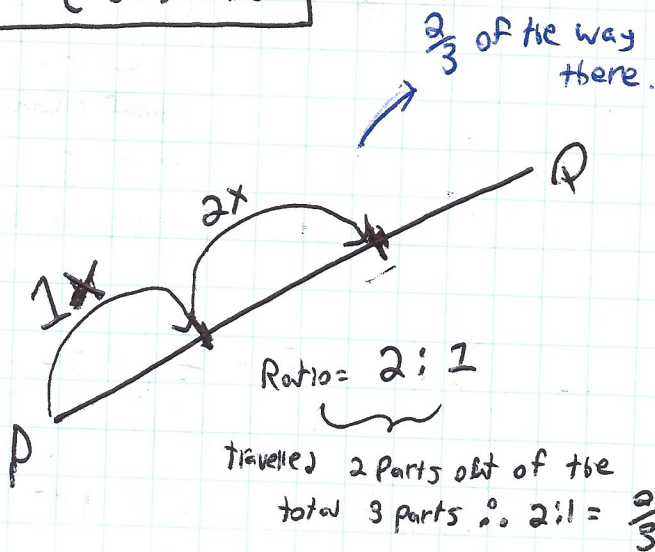 2/3 of the way
there.
Q
2x
1x
Ratio = 2 : 1
P
travelled 2 parts out of the
total 3 parts ∴ 2:1 = 2/3